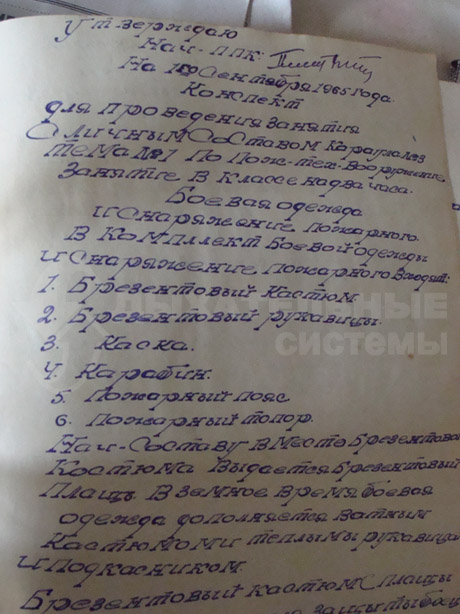 Утверждаю
Нач-ППК:
На сентября 1965 года.
Конспект
для проведения занятия
С личным составом караула №3
тема №1 По пож-тех-вооружение
Занятие в классе на два часа.
Боевая одежда
и снаряжение пожарного.
В комплект боевой одежды
и снаряжение пожарного входят:
1. Брезентовый костюм.
2. Брезентовый рукавицы.
3. Каска.
4. Карабин.
5. Пожарный пояс
6. Пожарный топор.
Нач-составу вместо брезентовог
костюма выдается брезентовый
плащь. В земное время боевая
одежда дополняется ватным
костюмом и теплымы рукавица
и подкасником.
Брезентовый костюм плащь
ДЫХАТЕЛЬНЫЕ
СИСТЕМЫ